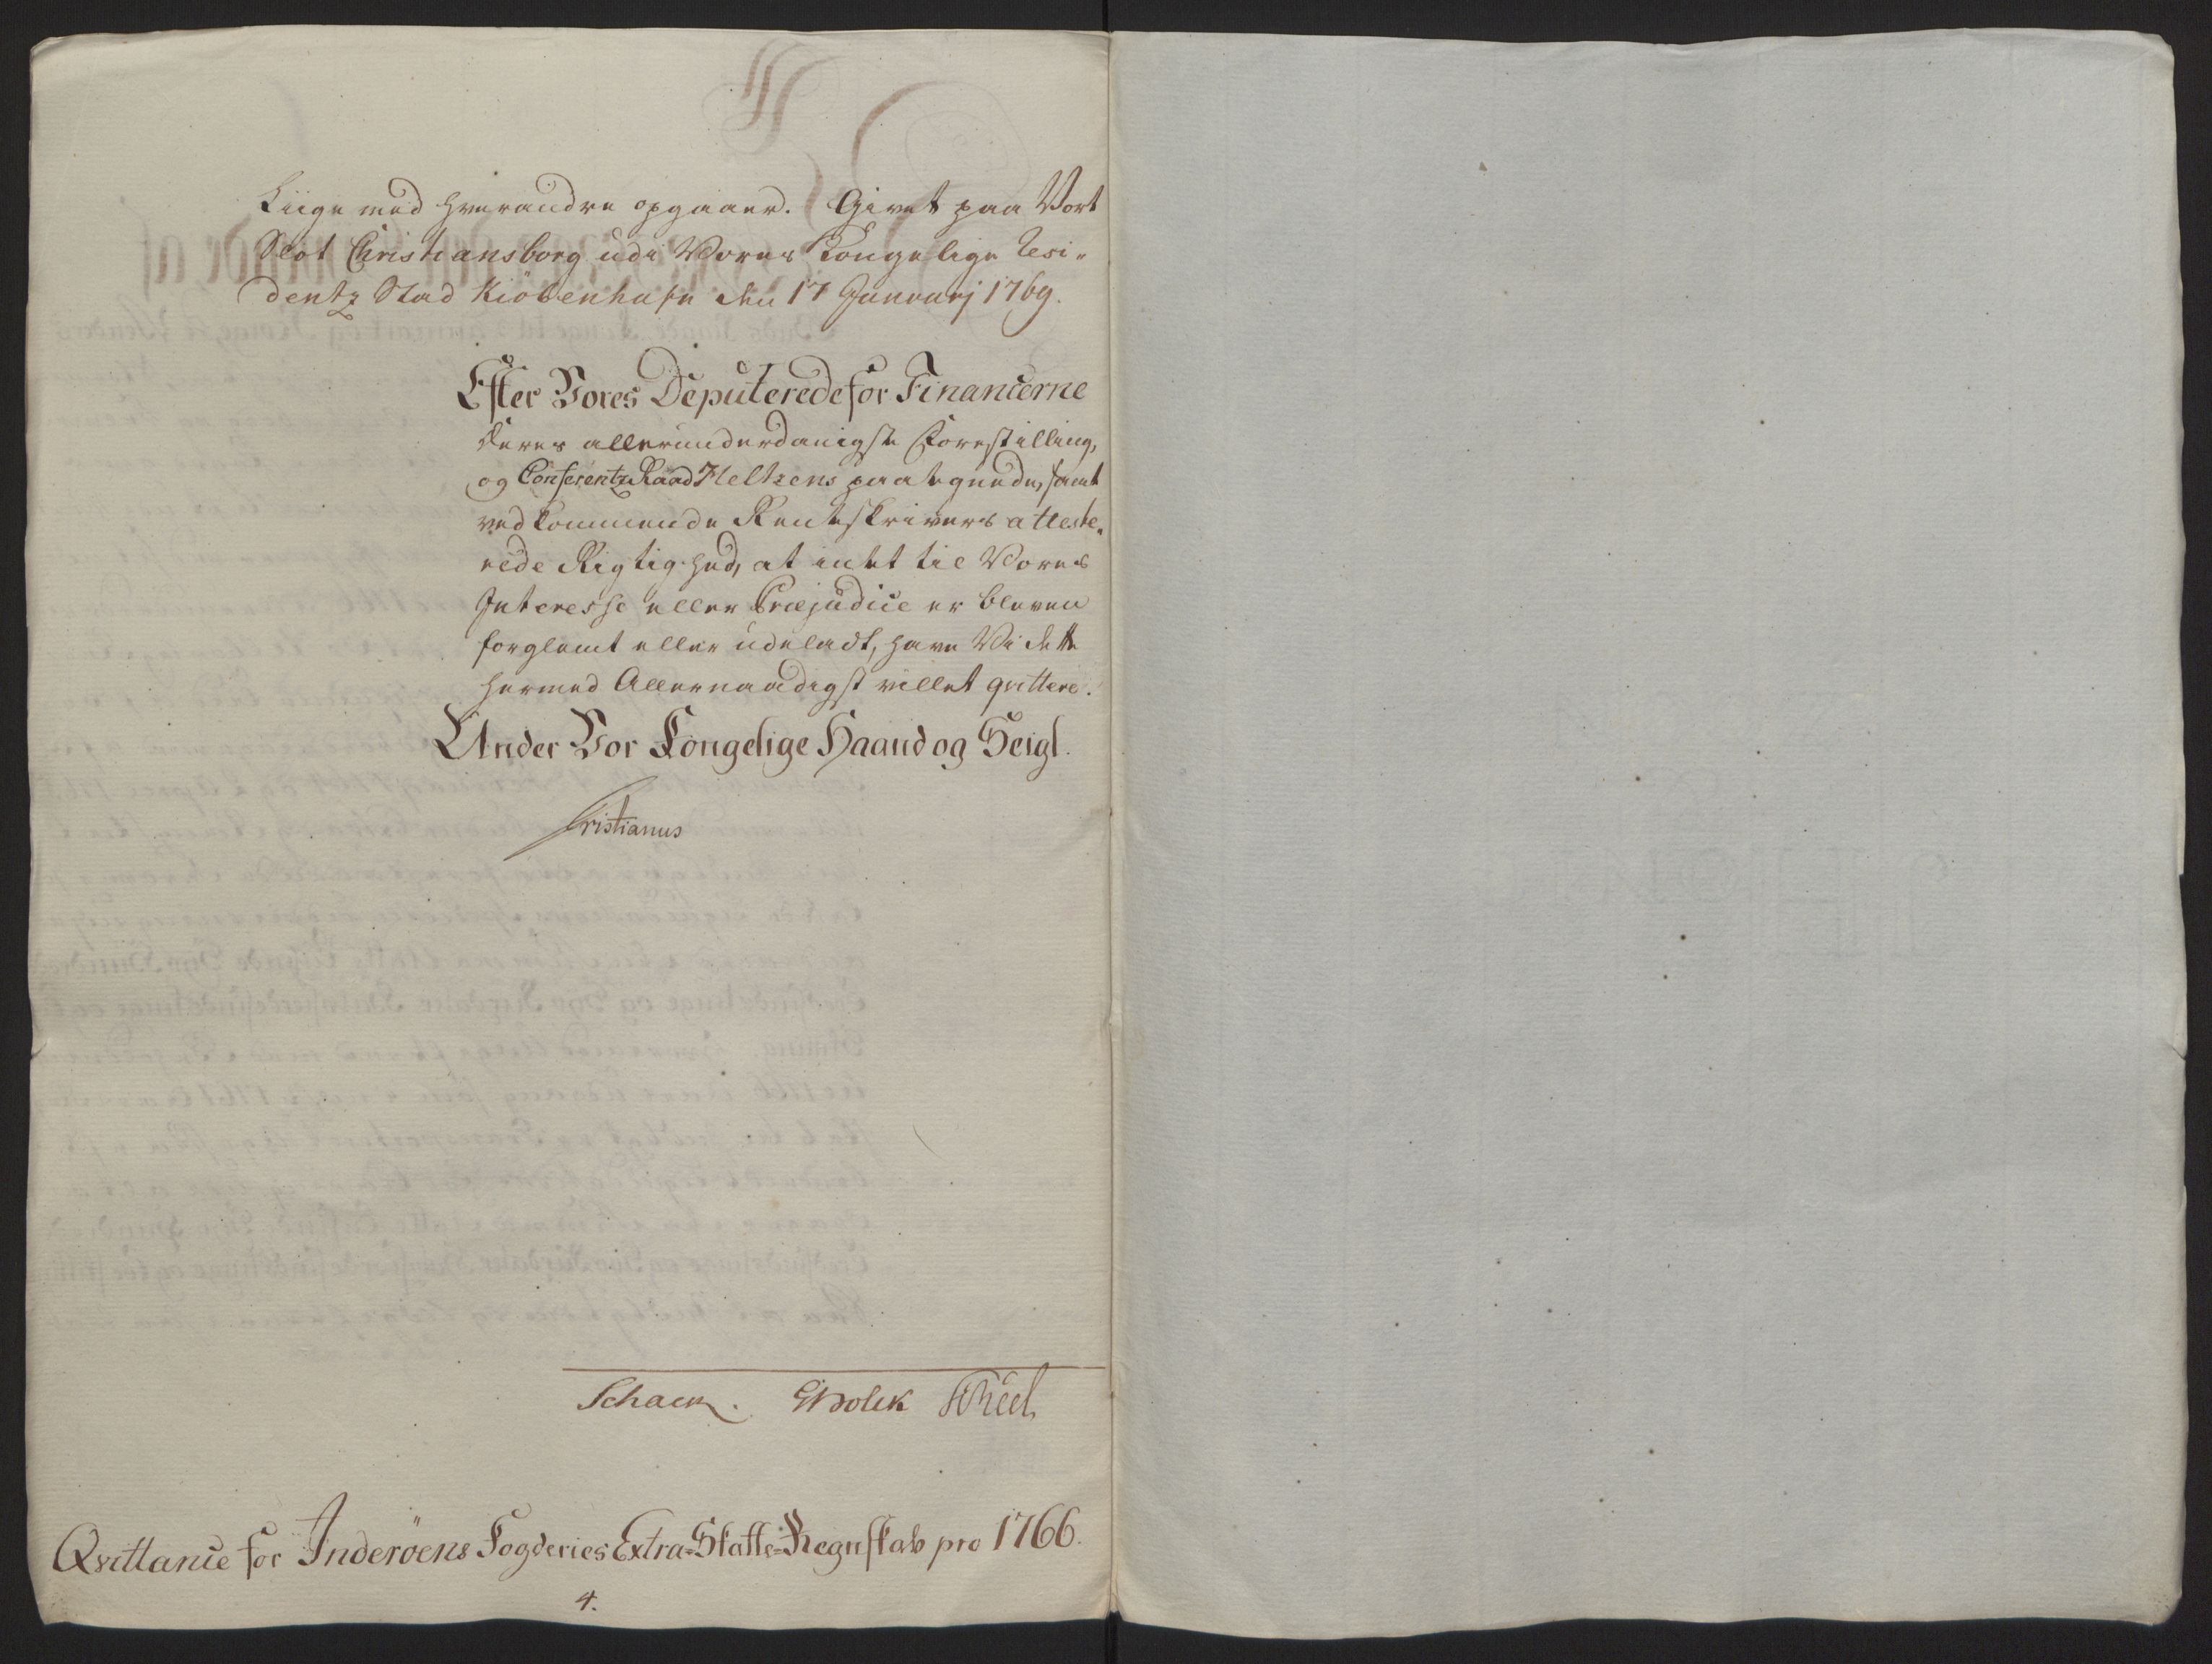 Liige med hverandre opgaaer. Givet paa Vort
Slot Christiansborg udi Vores Kongelige Resi„
dentz Stad Kiöbenhafn den 17 Januarj 1769.
Efter Vores Deputerede for Financerne
deres allerunderdanigste Forestilling,
og Conferentz Raad Heltzens paategnede, samt
vedkommende Rentskrivers atteste„
rede Rigtighed, at intet til Vores
Interesse eller Præjudice er bleven
forglemt eller udeladt, have Vi dette
hermed Allernaadigst villet qvittere.
Under Vor Kongelige Haand og Seigl.
Cristianus
Schack. GHolck
Qvittance for Inderöens Fogderies Extra-Skatte-Regnskab pro 1766.
4.